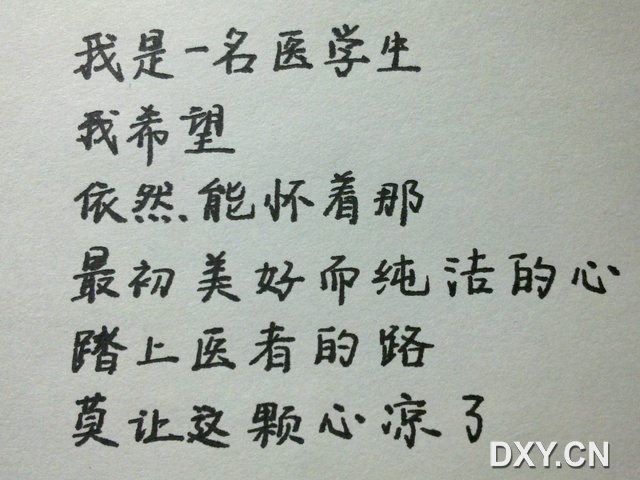 我是一名医学生
我希望
依然能怀着那
最初美好而纯洁的心
踏上医者的路
莫让这颗心凉了
DXY.CN